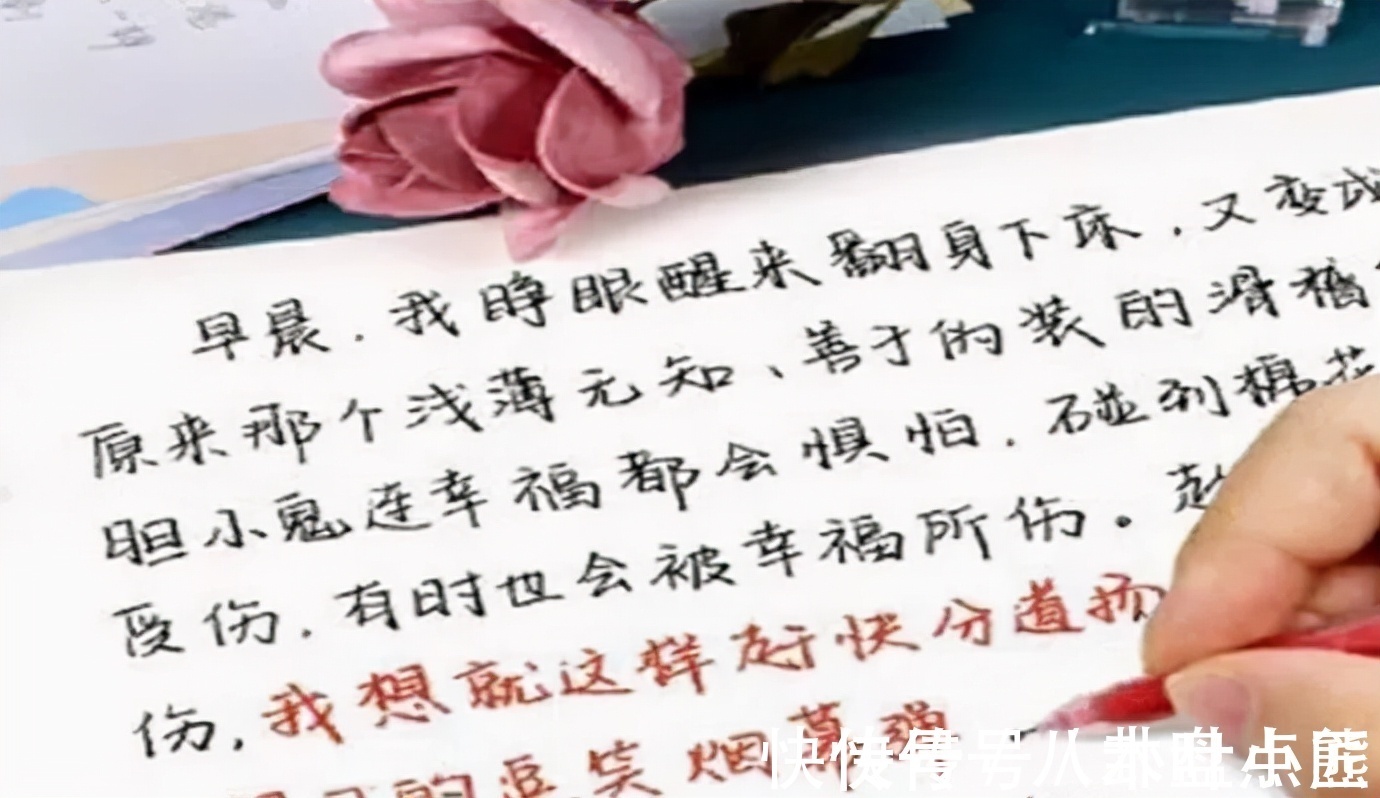 早晨,我睁眼醒来翻身下床,又变成
原来那个浅薄无知、善于伪装的滑稽
胆小鬼连幸福都会惧怕,碰到棉花
受伤,有时也会被幸福所伤。趁
伤,我想就这样赶快分道扬
的逗笑烟幕弹